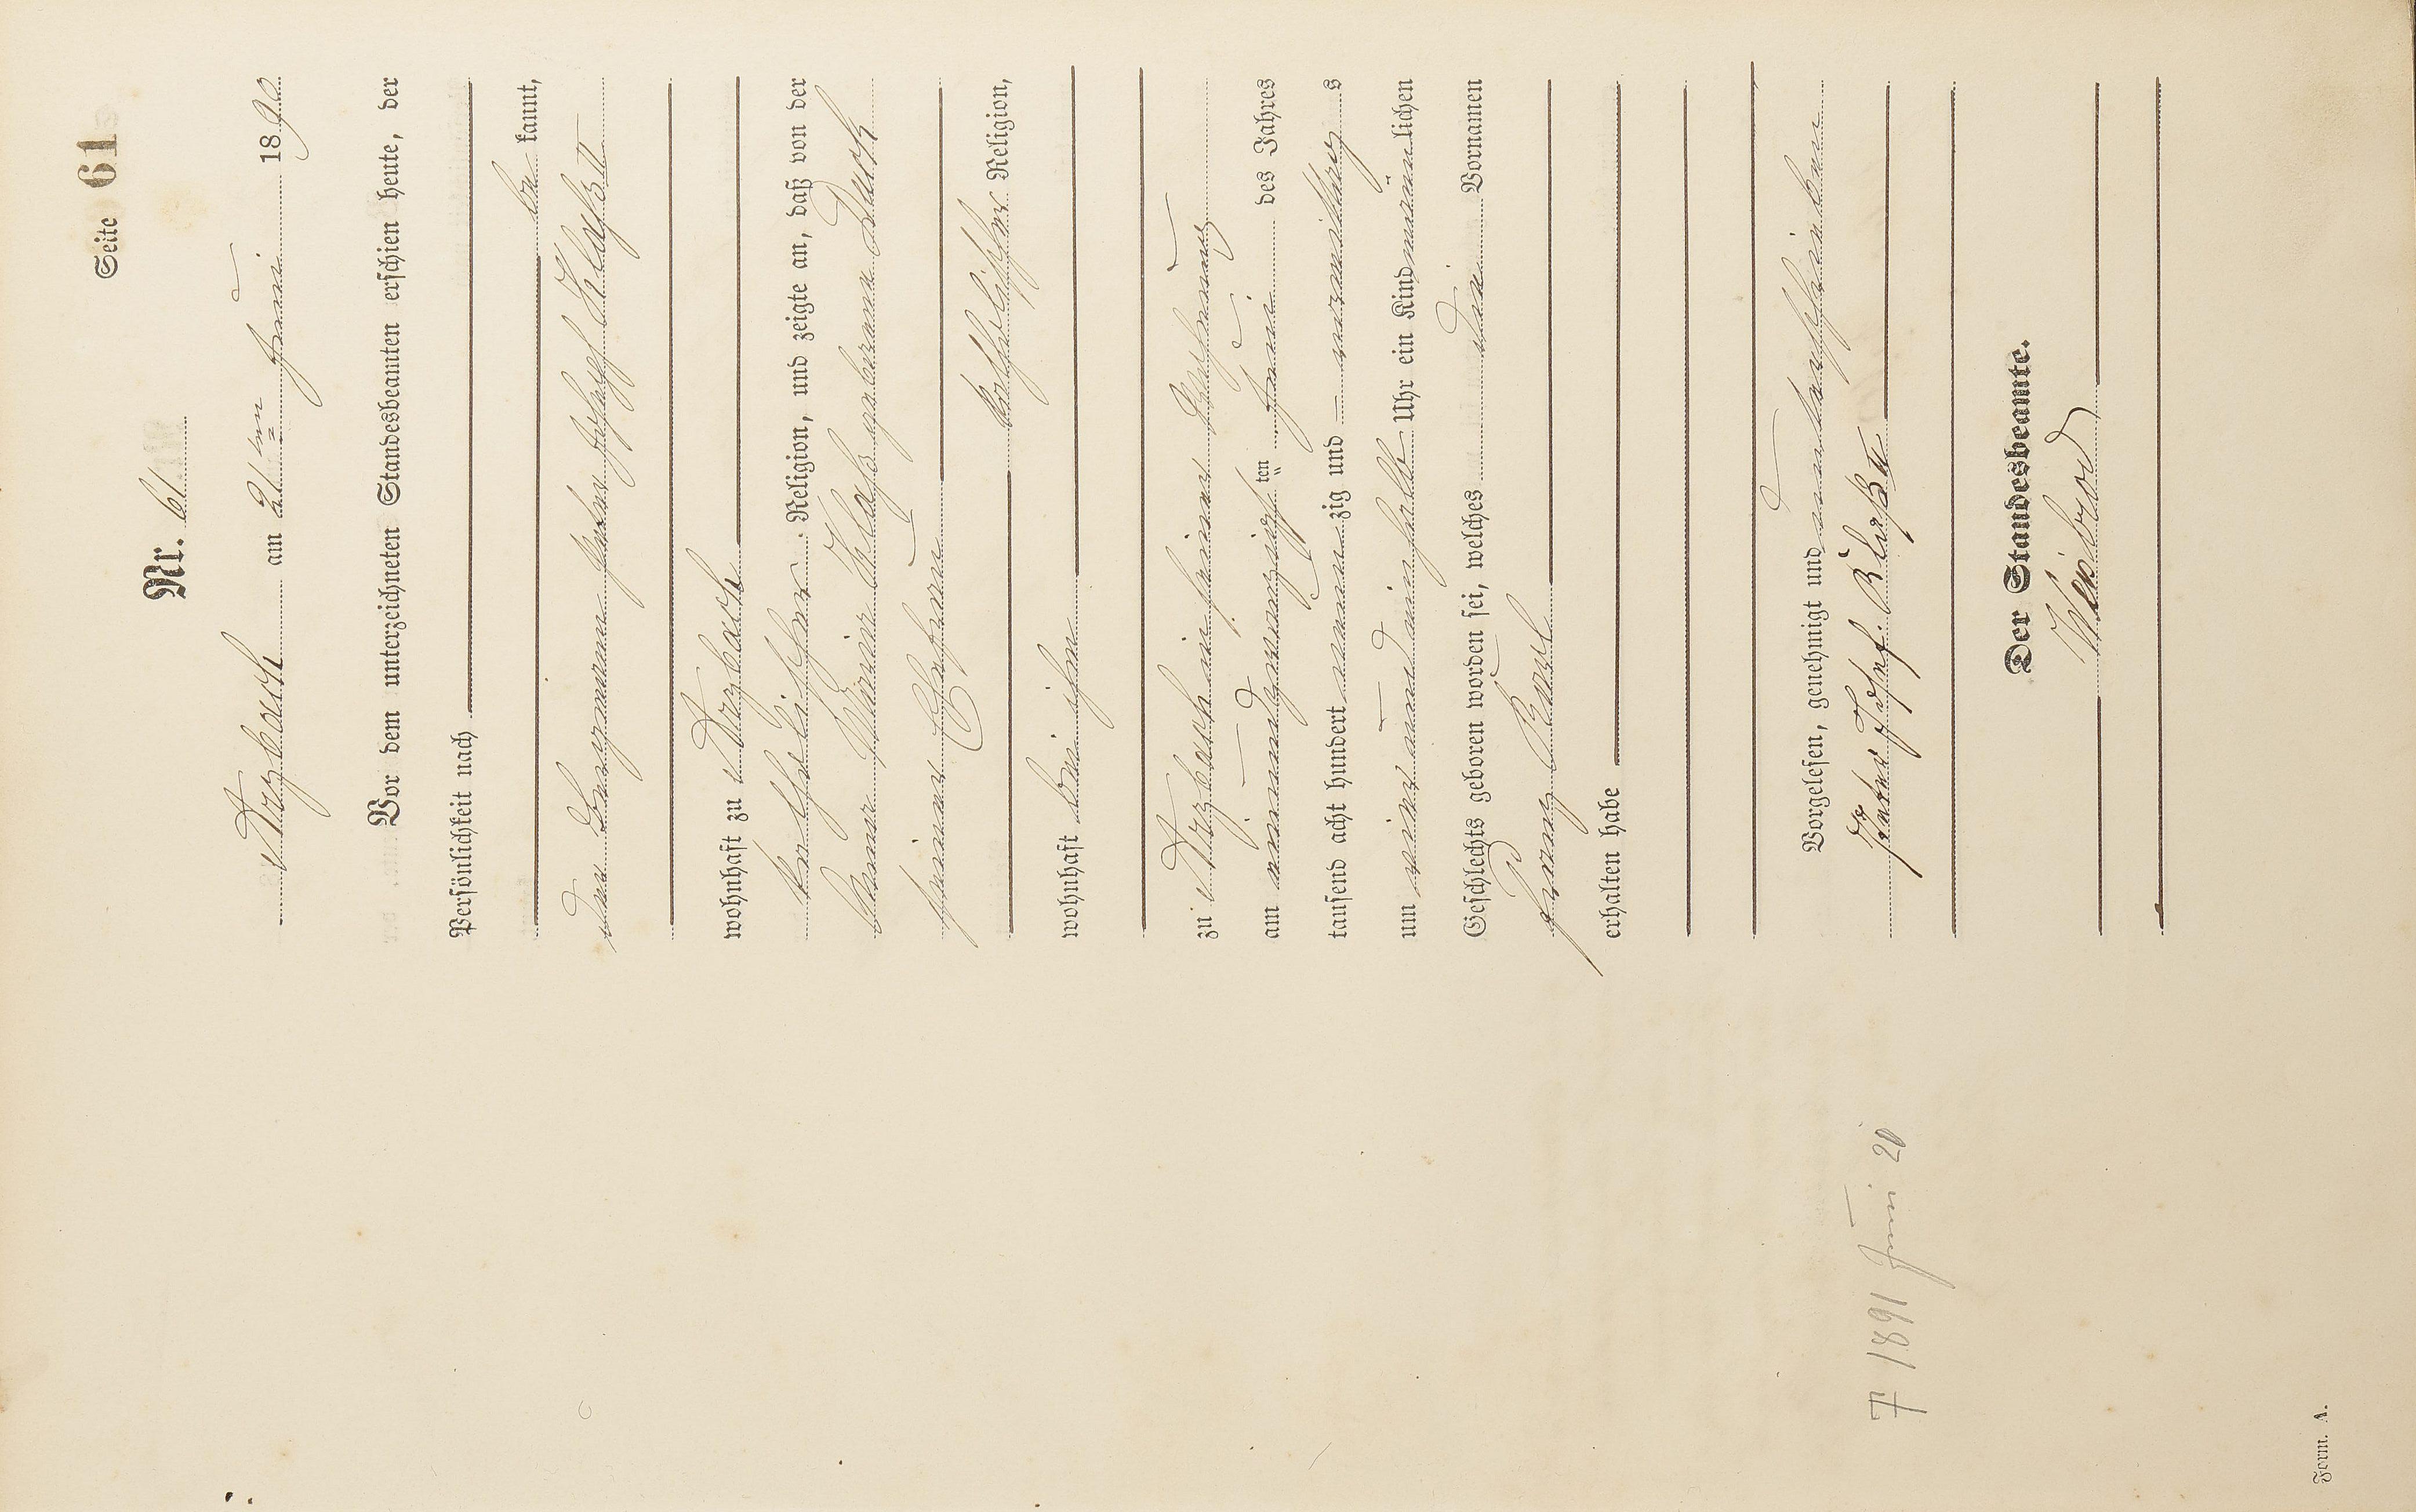 Seite 61
Nr. 61.
Arzbach am 21ten Juni 1890
Vor dem unterzeichneten Standesbeamten erschien heute, der
Persönlichkeit nach
be kannt,
der Bergmann Peter Joseph Klaß II
wohnhaft zu Arzbach
katholischer Religion, und zeigte an, daß von der
Maria Klaß geborene Buch
seiner Ehefrau
katholischer Religion,
wohnhaft bei ihm
zu Arzbach in seiner Wohnung
am einundzwanzigsten Juni des Jahres
tausend acht hundert neun zig und — vormittag s
um und ein halb Uhr ein Kind männ lichen
Geschlechts geboren worden sei, welches den Vornamen
Franz Karl
erhalten habe
Vorgelesen, genehmigt und unterschrieben
Peter Josef Klaß II
† 1891 Juni 20
Der Standesbeamte.
Weisbrod
Form. A.